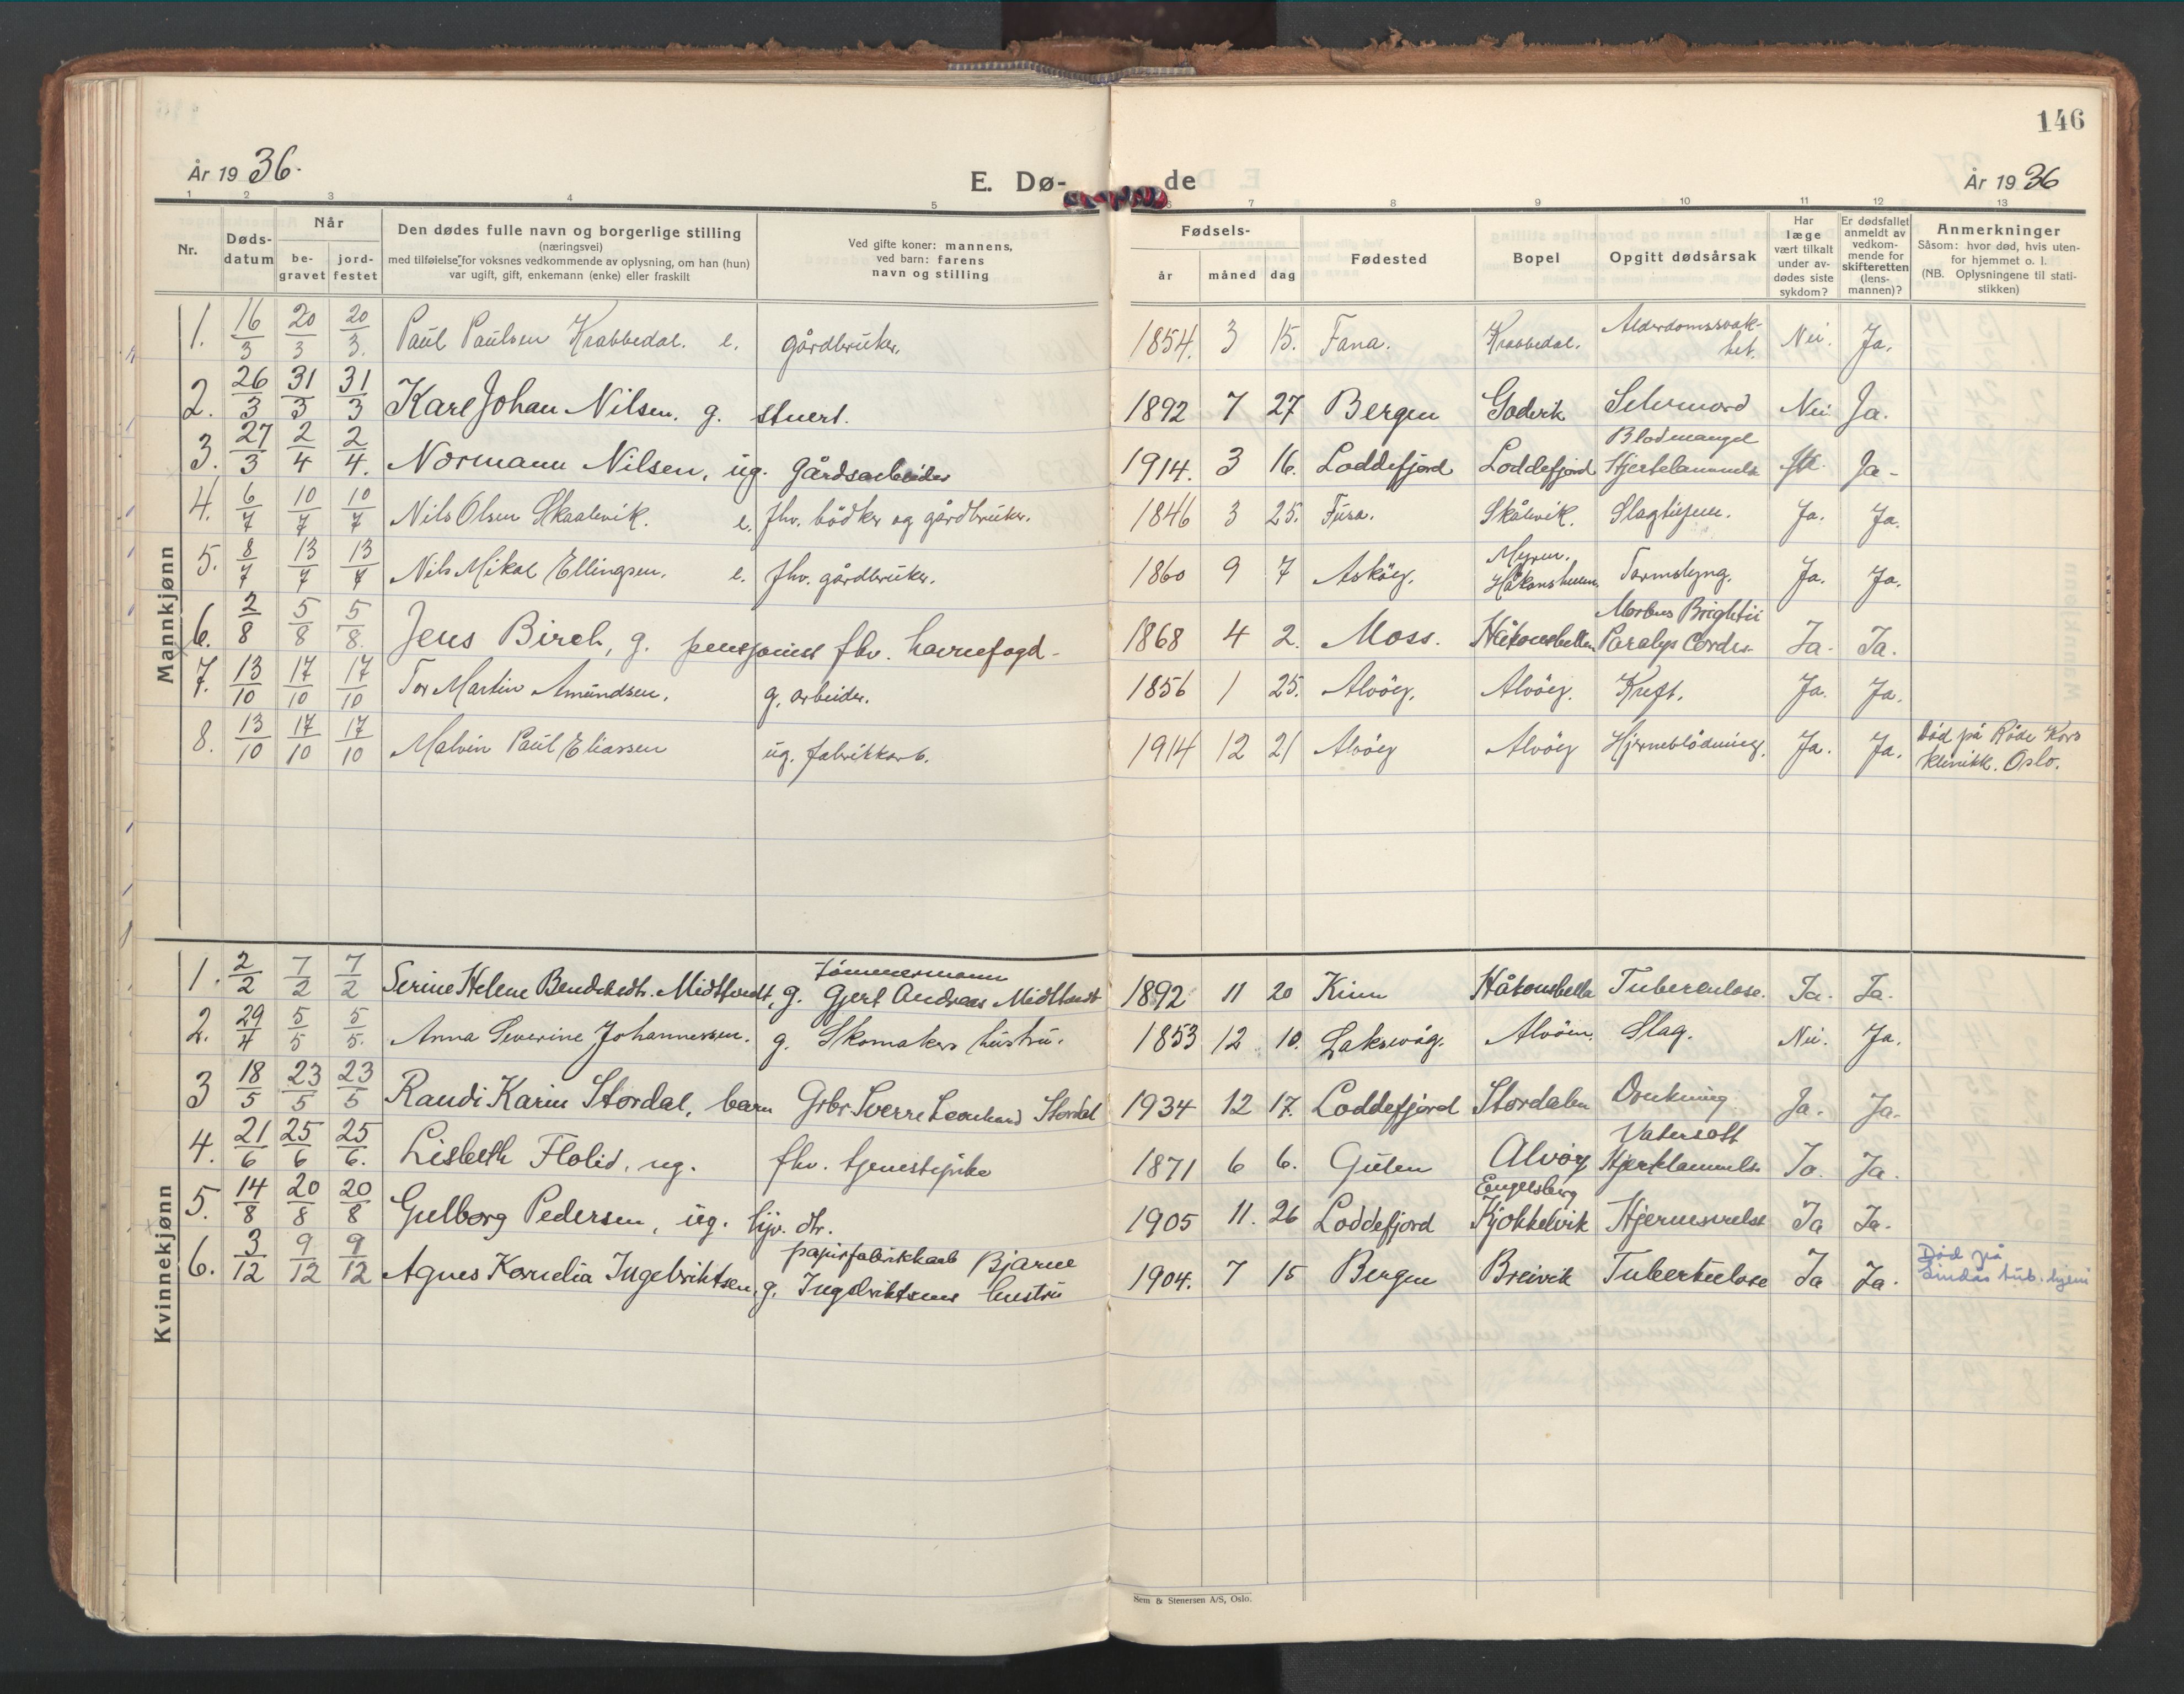 146
År 1936.
E. Dø-
de
År 1936
1 2 3 4 5 6 7 8 9 10 11 12 13
Nr.
Døds-
datum
Når
be-
gravet
jord-
festet
Den dødes fulle navn og borgerlige stilling
(næringsvei)
med tilføielse for voksnes vedkommende av oplysning, om han (hun)
var ugift, gift, enkemann (enke) eller fraskilt
Ved gifte koner: mannens,
ved barn: farens
navn og stilling
Fødsels-
år måned dag
Fødested
Bopel
Opgitt dødsårsak
Har
læge
vært tilkalt
under av-
dødes siste
sykdom?
Er dødsfallet
anmeldt av
vedkom-
mende for
skifteretten
(lens-
mannen)?
Anmerkninger
Såsom: hvor død, hvis uten-
for hjemmet o. l.
(NB. Oplysningene til stati-
stikken)
Mannkjønn
1. 16/3 20/3 20/3. Paul Paulsen Krabbedal. e. gårdbruker. 1854. 3 15. Fana. Krabbedal. Alderdomssvak-
het. Nei. Ja.
2. 26/3 31/3 31/3 Karl Johan Nilsen. g. stuert. 1892 7 27 Bergen Godvik Selvmord Nei Ja.
3. 27/3 2/4 2/4. Normann Nilsen, ug. Gårdsarbeider 1914. 3 16. Loddefjord Loddefjord Blodmangel
Hjertelammelse Ja-
4. 6/7 10/7 10/7 Nils Olsen Skaalevik. e. fhv. bödker og gårdbruker. 1846 3 25. Fusa. Skålevik. Slagtilfelle. Ja. Ja.
5. 8/7 13/7 13/7 Nils Mikal Ellingsen. e. fhv. gårdbruker. 1860 9 7 Asköy. Myren.
Tarmslyng. Ja. Ja.
6. 2/8 5/8 5/8. Jens Birch, g. pensjonist fhv. havnefogd- 1868 4 2. Moss. Håkonshella Morbus Brightii
Paralys Cordis Ja- Ja.
7. 13/10 17/10 17/10 Tor Martin Amundsen. g. arbeider. 1856 1 25. Alvöy. Alvöy. Kreft. Ja. Ja.
8. 13/10 17/10 17/10 Malvin Paul Eliassen ug. fabrikkarb. 1914 12 21 Alvöy Alvöy Hjerneblödning. Ja. Ja. Död på Röde Kors
klinikk. Oslo.
Kvinnekjønn
1. 2/2 7/2 7/2 Serine Helene Bendiksdtr. Midttveit, g. tömmermann
Gjert Andreas Midttveit 1892 11 20 Kinn Håkonshella Tuberculose. Ja. Ja.
2. 29/4 5/5 5/5. Anna Severine Johannessen. g. Skomakers hustru. 1853 12 10. Laksevåg. Alvöen. Slag. Nei. Ja.
3 18/5 23/5 23/5 Randi Karin Stordal, barn Grbr Sverre Leonhard Stordal 1934 12 17. Loddefjord Stordalen Drukning Ja. Ja.
4. 21/6 25/6 25/6. Lisbeth Flolid, ug. fhv. tjenestepike 1871 6 6. Gulen Alvöy Vatersott
Hjertelammelse Ja. Ja.
5. 14/8 20/8 20/8 Gulborg Pedersen, ug. hjv. dtr. 1905 11. 26 Loddefjord Engelsberg
Kjökkelvik Ja Ja.
6. 3/12 9/12 9/12 Agnes Kornelia Ingebriktsen, g. papirfabrikkarb Bjarne
Ingebriktsens hustru 1904. 7 15 Bergen Breivik Tuberkulose Ja Ja. Död på
Lindås tub. hjem
Sem & Stenersen A/S, Oslo.